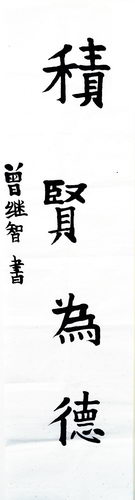 積賢為德
曾继智 書